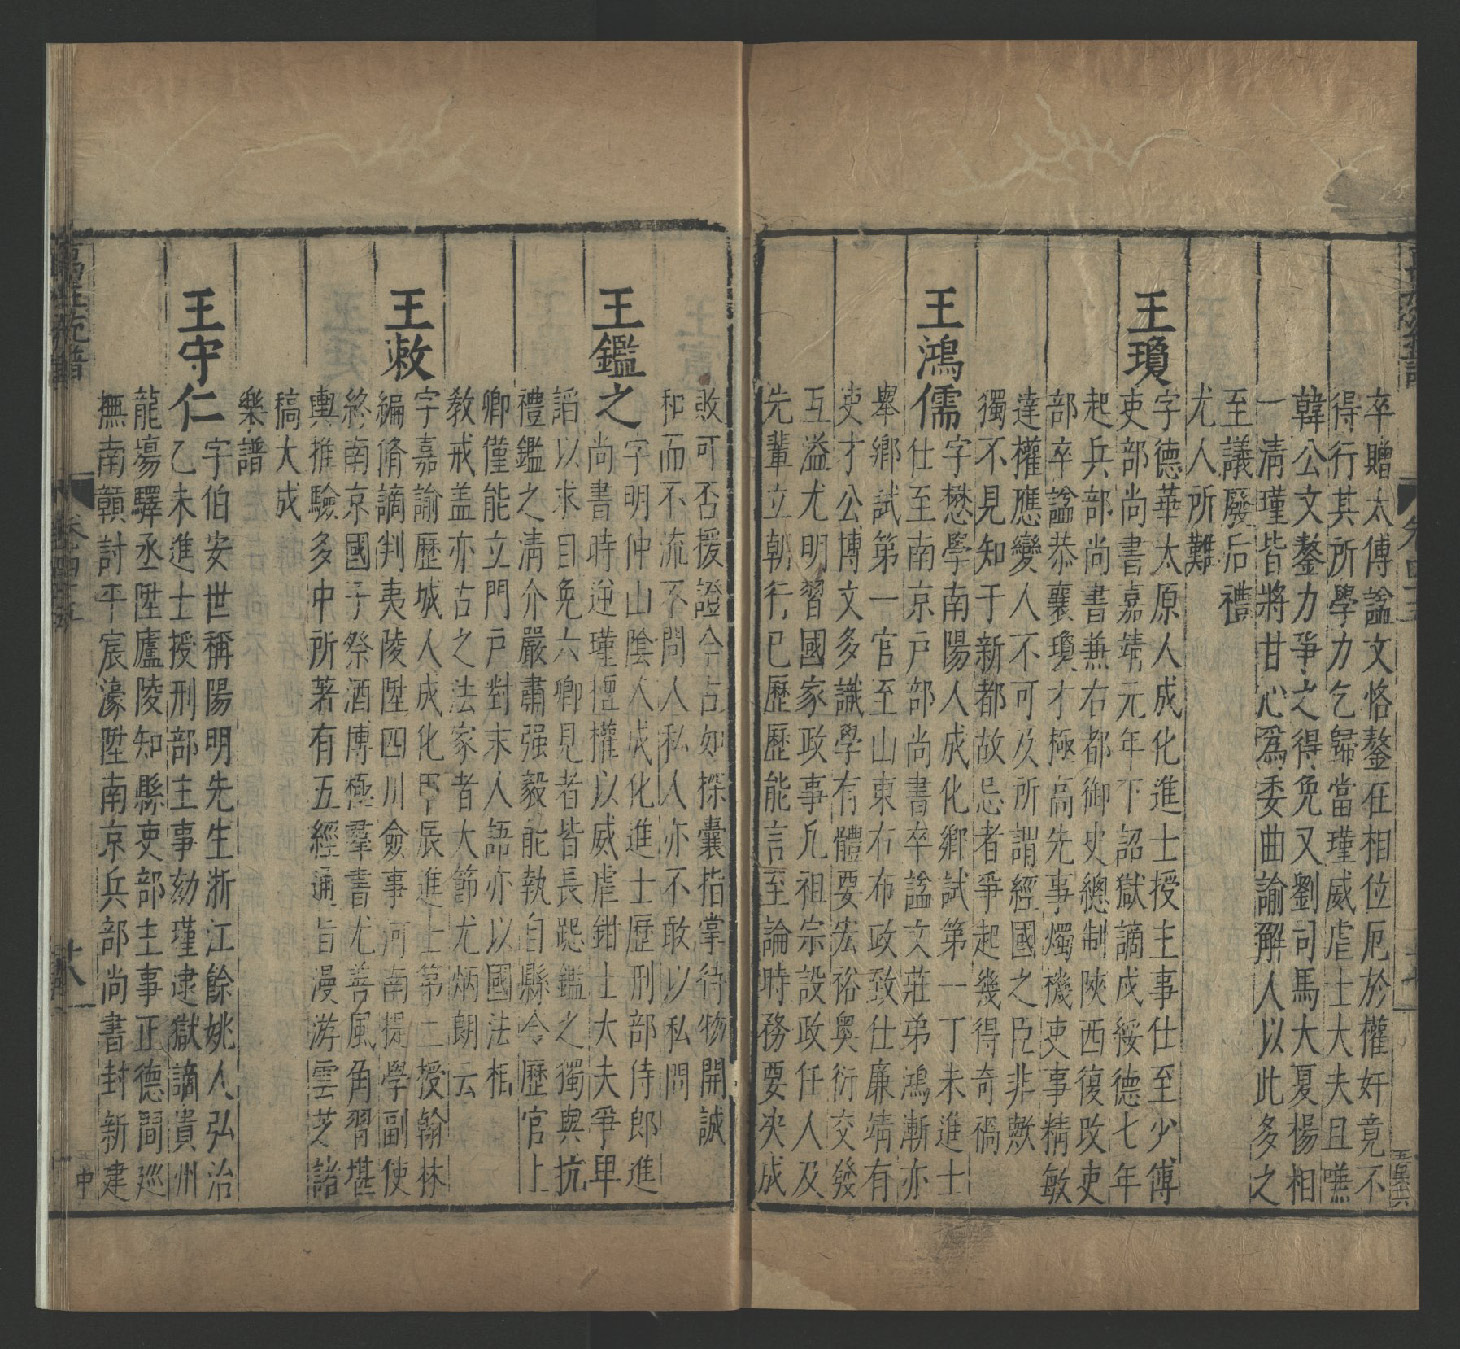 卒贈太傅謚文恪鏊在相位厄於權奸竟不
得行其所學力乞歸當瑾威虐士大夫且嚥
韓公文鏊力爭之得免又劉司馬大夏楊相
一清瑾皆將甘心爲委曲諭解人以此多之
至議廢后禮
尤人所難
王瓊
字德華太原人成化進士授主事仕至少傅
吏部尚書嘉靖元年下詔獄謫戍綏德七年
起兵部尚書兼右都御史總制陝西復改吏
部卒謚恭襄瓊才極高先事燭機吏事精敏
達權應變人不可及所謂經國之臣非歟
獨不見知于新都故忌者爭起幾得奇禍
王鴻儒
字懋學南陽人成化鄉試第一丁未進士
仕至南京戶部尚書卒謚文莊弟鴻漸亦
舉鄉試第一官至山東右布政致仕廉靖有
吏才公博文多識學有體要宏裕奧衍交發
互溢尤明習國家政事凡祖宗設政任人及
先輩立朝行已歷歷能言至論時務要夬成
敗可否援證令古如探囊指掌待物開誠
和而不流不問人私人亦不敢以私問
王鑑之
字明仲山陰人成化進士歷刑部侍郎進
尚書時逆瑾擅權以威虐鉗士大夫爭卑
謟以求目免六卿見者皆長跽鑑之獨與抗
禮鑑之清介嚴肅强毅能執自縣令歷官上
卿僅能立門戶對末人語亦以國法柜
敎戒盖亦古之法家者大節尤炳朗云
王敕
字嘉諭歷城人成化甲辰進士第二授翰林
編脩謫判夷陵陞四川僉事河南提學副使
終南京國子祭酒博極羣書尤善風角習堪
輿推驗多中所著有五經通旨漫游雲芝諸
稿大成
樂譜
王守仁
字伯安世稱陽明先生浙江餘姚人弘治
乙未進士授刑部主事劾瑾逮獄謫貴州
龍塲驛丞陞廬陵知縣吏部主事正德間巡
撫南贛討平宸濠陞南京兵部尚書封新建
中